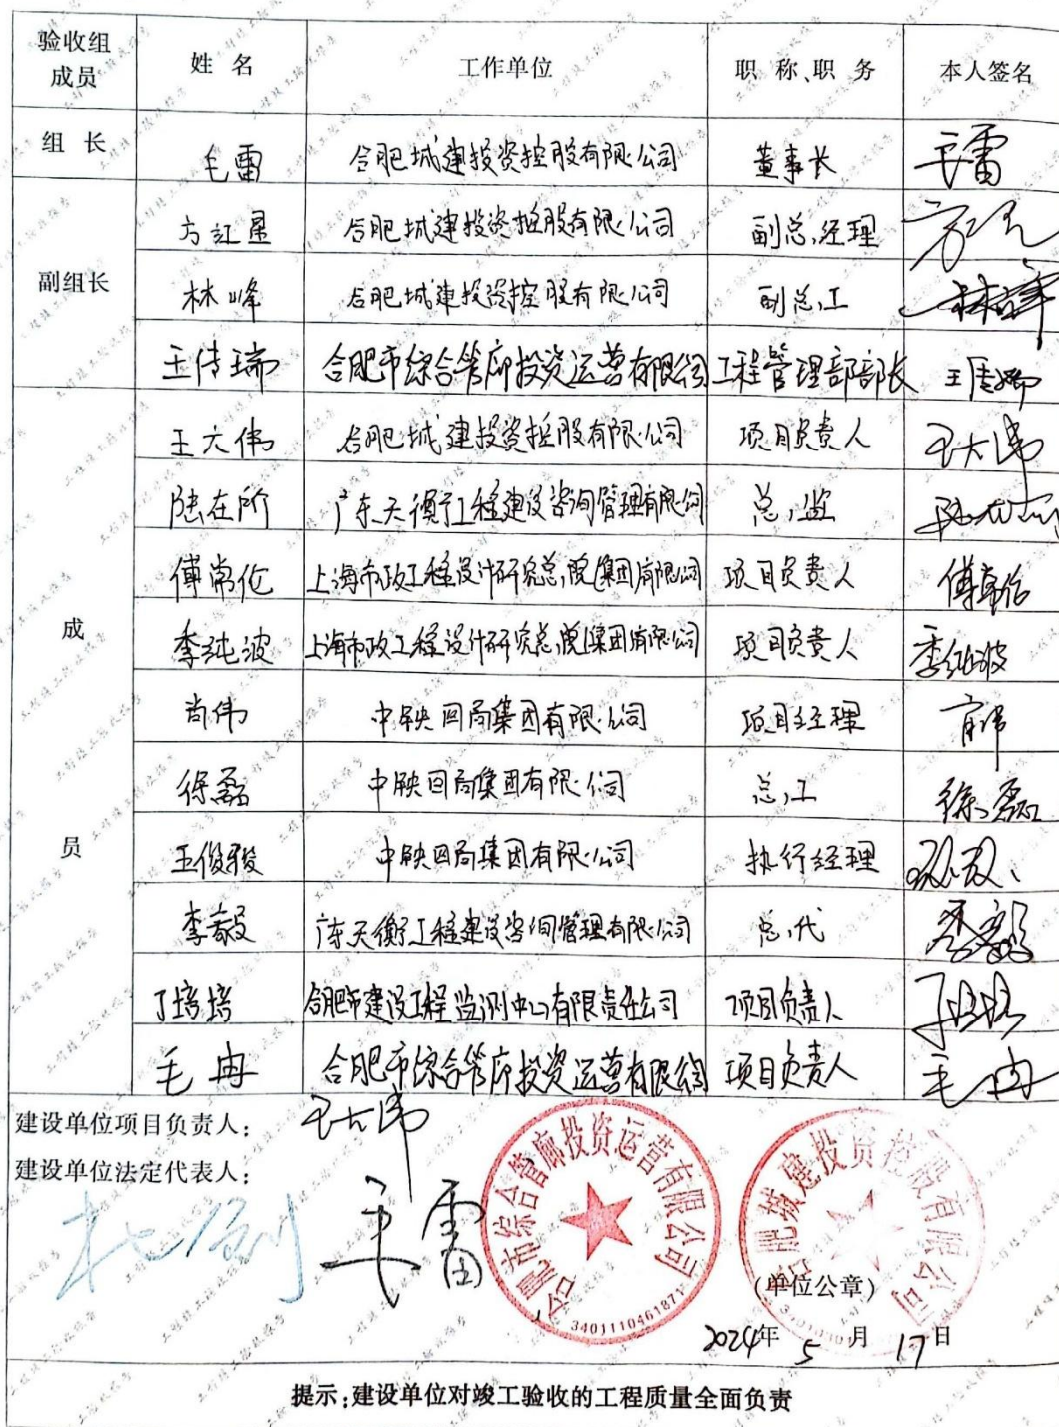 验收组成员 姓名 工作单位 职称、职务 本人签名
组长 毛雷 合肥城建投资控股有限公司 董事长 毛雷
副组长 方红星 合肥城建投资控股有限公司 副总经理
林峰 合肥城建投资控股有限公司 副总工 林峰
王传瑞 合肥市综合管廊投资运营有限公司 工程管理部部长 王传瑞
成员 王大伟 合肥城建投资控股有限公司 项目负责人 王大伟
陆在所 广东天衡工程建设咨询管理有限公司 总监 陆在所
傅常伦 上海市政工程设计研究总院(集团)有限公司 项目负责人 傅常伦
李纯波 上海市政工程设计研究总院(集团)有限公司 项目负责人 李纯波
肖伟 中铁四局集团有限公司 项目经理 肖伟
徐磊 中铁四局集团有限公司 总工 徐磊
王俊骏 中铁四局集团有限公司 执行经理
李毅 广东天衡工程建设咨询管理有限公司 总代 李毅
丁培培 合肥市建设工程监测中心有限责任公司 项目负责人 丁培培
毛冉 合肥市综合管廊投资运营有限公司 项目负责人 毛冉
建设单位项目负责人: 王大伟
建设单位法定代表人:
毛雷
合肥市综合管廊投资运营有限公司
3401110461871
合肥城建投资控股有限公司
(单位公章)
2024年 5 月 17 日
提示:建设单位对竣工验收的工程质量全面负责